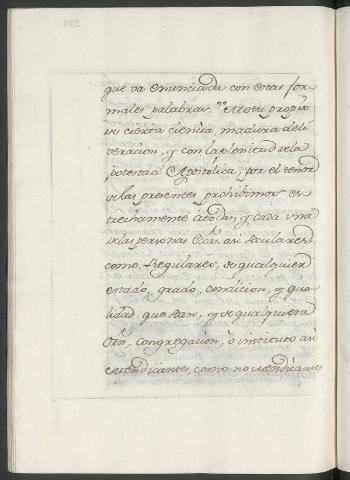 que va enunciada con estas for-
males palabras "Motu proprio
de cierta ciencia, madura deli
veracion, y con la plenitud de la
potestad Apostólica, por el tenor
de las presentes prohibimos es-
trechamente a todas, y cada una
de las personas Eccas. asi seculares
como Regulares, de qualquier
estado, grado, condicion, y qua-
lidad que sean, y de qualquiera
Orn, Congregacion, ò instituto asi
Mendicantes, como no Mendicantes